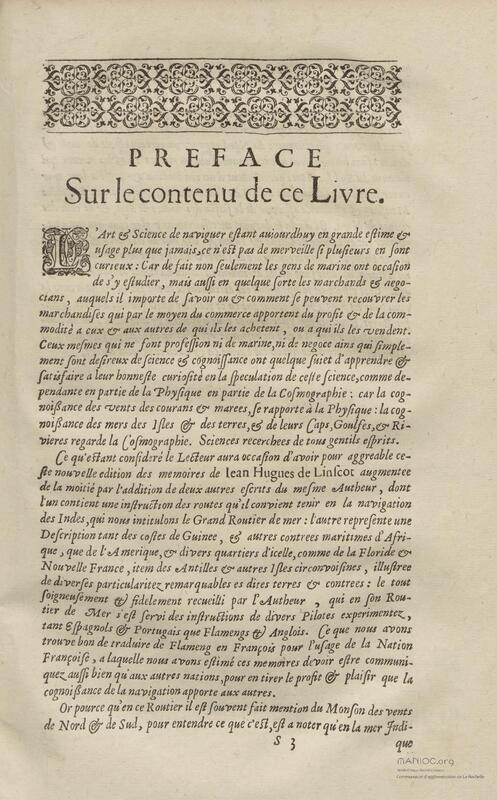 PREFACE
Sur le contenu de ce Livre.
L'Art & Science de naviguer estant aujourdhuy en grande estime &
usage plus que jamais, ce n'est pas de merveille si plusieurs en sont
curieux : Car de fait non seulement les gens de marine ont occasion
de s'y estudier, mais aussi en quelque sorte les marchands & nego-
cians, auquels il importe de savoir ou & comment se peuvent recouvrer les
marchandises qui par le moyen du commerce apportent du profit & de la com-
modité a eux & aux autres de qui ils les achetent, ou a qui ils les vendent.
Ceux mesmes qui ne font profession ni de marine, ni de negoce ains qui simple-
ment sont desireux de science & cognoissance ont quelque sujet d'apprendre &
satisfaire a leur honneste curiosité en la speculation de ceste science, comme de-
pendante en partie de la Physique en partie de la Cosmographie : car la cog-
noißance des vents des courans & marees, se rapporte à la Physique : la cog-
noißance des mers des Isles & des terres, & de leurs Caps, Goulfes, & Ri-
vieres regarde la Cosmographie. Sciences recerchees de tous gentils esprits.
Ce qu'estant consideré le Lecteur aura occasion d'avoir pour aggreable ce-
ste nouvelle edition des memoires de Iean Hugues de Linscot augmentee
de la moitié par l'addition de deux autres escrits du mesme Autheur, dont
l'un contient une instruction des routes qu'il convient tenir en la navigation
des Indes, qui nous intitulons le Grand Routier de mer : l'autre represente une
Description tant des costes de Guinee, & autres contrees maritimes d'Afri-
que, que de l'Amerique, & divers quartiers d'icelle, comme de la Floride &
Nouvelle France, item des Antilles & autres Isles circonvoisines, illustree
de diverses particularitez remarquables es dites terres & contrees : le tout
soigneusement & fidelement recueilli par l'Autheur, qui en son Rou-
tier de Mer s'est servi des instructions de divers Pilotes experimentez,
tant Espagnols & Portugais que Flamengs & Anglois. Ce que nous avons
trouvé bon de traduire de Flameng en François pour l'usage de la Nation
Françoise, a laquelle nous avons estimé ces memoires devoir estre communi-
quez aussi bien qu'aux autres nations, pour en tirer le profit & plaisir que la
cognoißance de la navigation apporte aux autres.
Or pource qu'en ce Routier il est souvent fait mention du Monson des vents
de Nord & de Sud, pour entendre ce que c'est, est a noter qu'en la mer Indi-
S 3
que
MANIOC.org
Communauté d'agglomération de La Rochelle